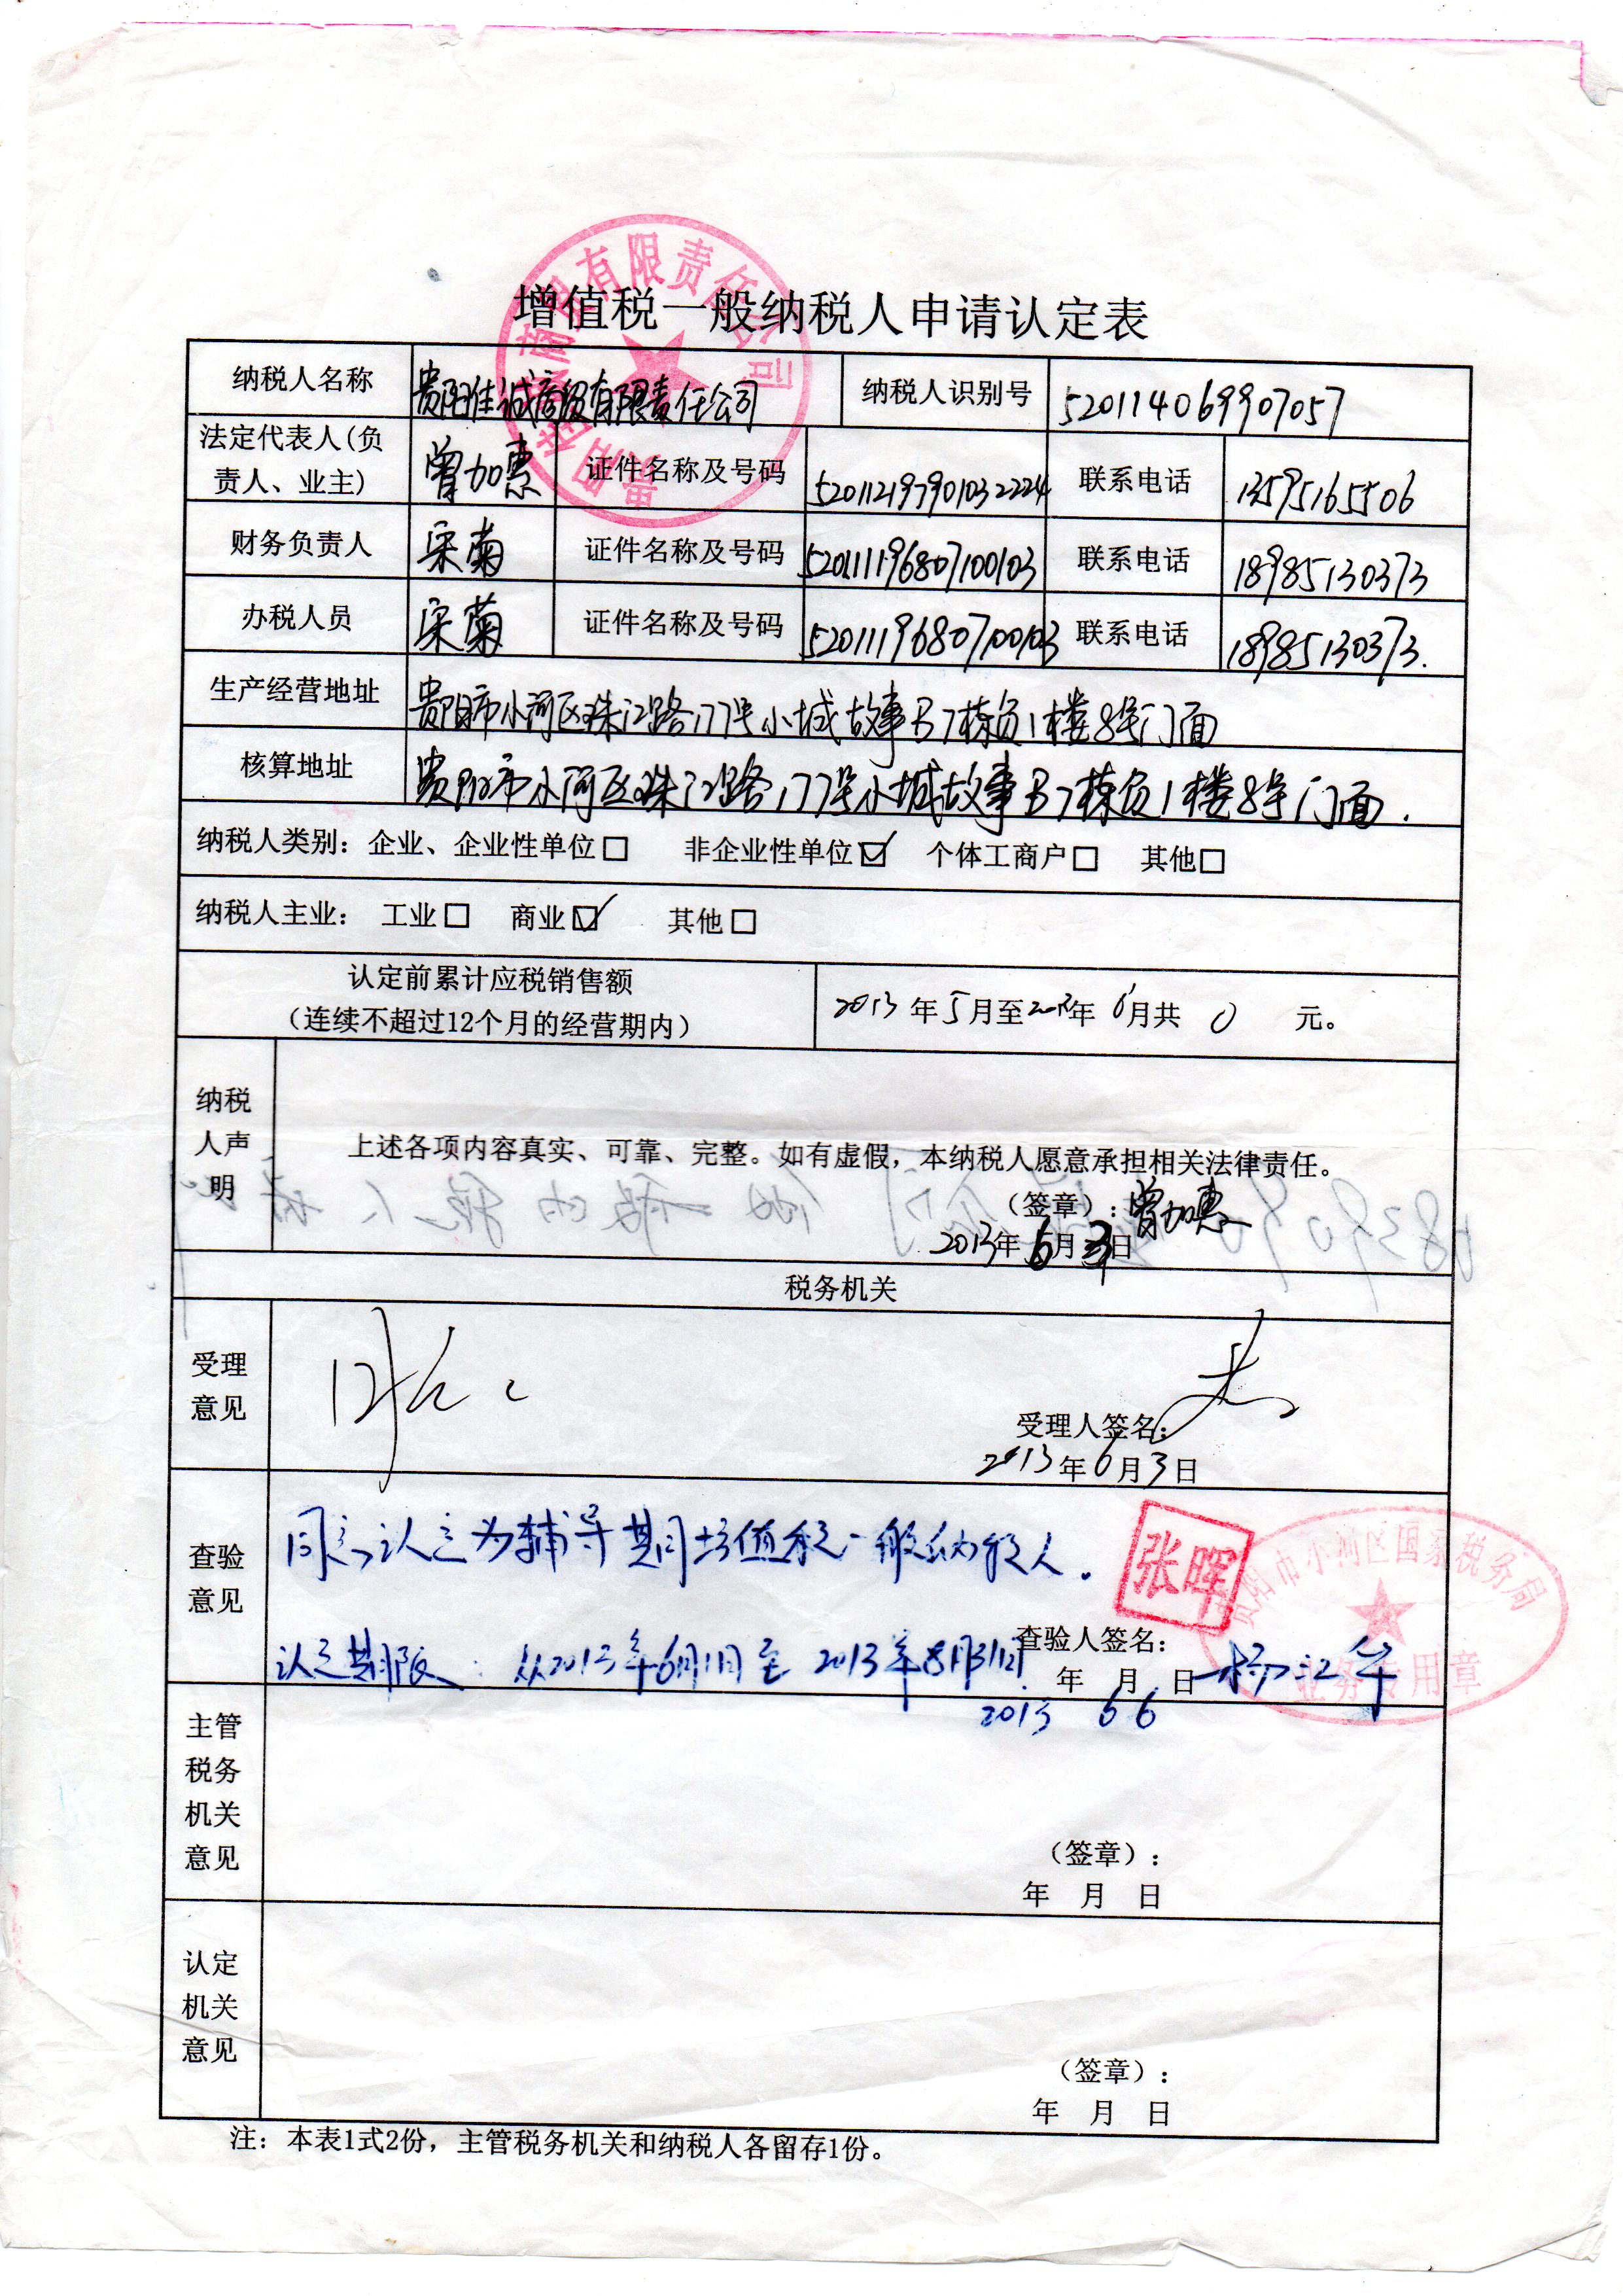 增值税一般纳税人申请认定表
纳税人名称 贵阳佳诚商贸有限责任公司 纳税人识别号 520114069907057
法定代表人(负责人、业主) 曾加惠 证件名称及号码 520112197901032224 联系电话 13595165506
财务负责人 宋菊 证件名称及号码 520111196807100103 联系电话 18985130373
办税人员 宋菊 证件名称及号码 520111196807100103 联系电话 18985130373.
生产经营地址 贵阳市小河区珠江路177号小城故事B7栋负1楼8号门面
核算地址 贵阳市小河区珠江路177号小城故事B7栋负1楼8号门面.
纳税人类别：企业、企业性单位□ 非企业性单位☑ 个体工商户□ 其他□
纳税人主业： 工业□ 商业☑ 其他□
认定前累计应税销售额
（连续不超过12个月的经营期内）
2013年5月至2013年6月共 0 元。
纳税人声明
上述各项内容真实、可靠、完整。如有虚假，本纳税人愿意承担相关法律责任。
（签章）：曾加惠
2013年6月3日
税务机关
受理意见
受理人签名：
2013年6月3日
查验意见
同意认定为辅导期增值税一般纳税人.
张晖
贵阳市小河区国家税务局
业务专用章
认定期限：从2013年6月1日至2013年8月31日
查验人签名： 杨江华
年 月 日
2013 6 6
主管税务机关意见
（签章）：
年 月 日
认定机关意见
（签章）：
年 月 日
注：本表1式2份，主管税务机关和纳税人各留存1份。